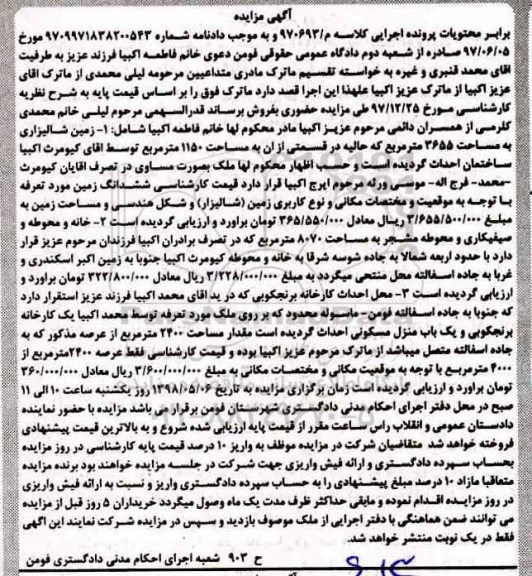 آگهی مزایده
برابر محتویات پرونده اجرایی کلاسه م/۹۷۰۶۹۳ و به موجب دادنامه شماره ۹۷۰۹۹۷۱۸۳۸۲۰۰۵۴۳ مورخ
۹۷/۰۶/۰۵ صادره از شعبه دوم دادگاه عمومی حقوقی فومن دعوی خانم فاطمه اکبیا فرزند عزیز به طرفیت
اقای محمد قنبری و غیره به خواسته تقسیم ماترک مادری متداعیین مرحومه لیلی محمدی از ماترک اقای
عزیز اکبیا از ماترک عزیز اکبیا علهذا این اجرا قصد دارد ماترک فوق را بر اساس قیمت پایه به شرح نظریه
کارشناسی مورخ ۹۷/۱۲/۲۵ طی مزایده حضوری بفروش برساند قدرالسهمی مرحوم لیلی خانم محمدی
کلرمی از همسران دائمی مرحوم عزیز اکبیا مادر محکوم لها خانم فاطمه اکبیا شامل: ۱- زمین شالیزاری
به مساحت ۳۶۵۵ مترمربع که حالیه در قسمتی از ان به مساحت ۱۱۵۰ مترمربع توسط اقای کیومرث اکبیا
ساختمان احداث گردیده است و حسب اظهار محکوم لها ملک بصورت مساوی در تصرف اقایان کیومرث
-محمد- فرج اله- موسی ورثه مرحوم ایرج اکبیا قرار دارد قیمت کارشناسی ششدانگ زمین مورد تعرفه
با توجه به موقعیت و مختصات مکانی و نوع کاربری زمین (شالیزار) و شکل هندسی و مساحت زمین به
مبلغ ۳/۶۵۵/۵۰۰/۰۰۰ ریال معادل ۳۶۵/۵۵۰/۰۰۰ تومان براورد و ارزیابی گردیده است ۲- خانه و محوطه و
صیفیکاری و محوطه مشجر به مساحت ۸۰۷۰ مترمربع که در تصرف برادران اکبیا فرزندان مرحوم عزیز قرار
دارد با حدود اربعه شمالا به جاده شوسه شرقا به خانه و محوطه کیومرث اکبیا جنوبا به زمین اکبر اسکندری و
غربا به جاده اسفالته محل منتهی میگردد به مبلغ ۳/۲۲۸/۰۰۰/۰۰۰ ریال معادل ۳۲۲/۸۰۰/۰۰۰ تومان براورد
ارزیابی گردیده است ۳- محل احداث کارخانه برنجکوبی که در ید اقای محمد اکبیا فرزند عزیز استقرار دارد
که جنوبا به جاده اسفالته فومن- ماسوله محدود که بر روی ملک مورد تعرفه توسط محمد اکبیا یک کارخانه
برنجکوبی و یک باب منزل مسکونی احداث گردیده است مقدار مساحت ۲۴۰۰ مترمربع از عرصه مذکور که به
جاده اسفالته متصل میباشد از ماترک مرحوم عزیز اکبیا بوده و قیمت کارشناسی فقط عرصه ۲۴۰۰مترمربع از
۴۰۰۰ مترمربع با توجه به موقعیت مکانی و مختصات مکانی به مبلغ ۳/۶۰۰/۰۰۰/۰۰۰ ریال معادل ۳۶۰/۰۰۰/۰۰۰
تومان براورد و ارزیابی گردیده است زمان برگزاری مزایده به تاریخ ۱۳۹۸/۰۵/۰۶ روز یکشنبه ساعت ۱۰ الی ۱۱
صبح در محل دفتر اجرای احکام مدنی دادگستری شهرستان فومن برقرار می باشد مزایده با حضور نماینده
دادستان عمومی و انقلاب راس ساعت مقرر از قیمت پایه ارزیابی شده شروع و به بالاترین قیمت پیشنهادی
فروخته خواهد شد متقاضیان شرکت در مزایده موظف به واریز ۱۰ درصد قیمت پایه کارشناسی در روز مزایده
بحساب سپرده دادگستری و ارائه فیش واریزی جهت شرکت در جلسه مزایده خواهند بود برنده مزایده
متعاقبا مازاد ۱۰ درصد مبلغ پیشنهادی را به حساب سپرده دادگستری واریز و نسبت به ارائه فیش واریزی
در روز مزایده اقدام نموده و مابقی حداکثر ظرف مدت یک ماه وصول میگردد خریداران ۵ روز قبل از مزایده
می توانند ضمن هماهنگی با دفتر اجرایی از ملک موصوف بازدید و سپس در مزایده شرکت نمایند این اگهی
فقط در یک نوبت منتشر خواهد شد.
ح ۹۰۳ شعبه اجرای احکام مدنی دادگستری فومن